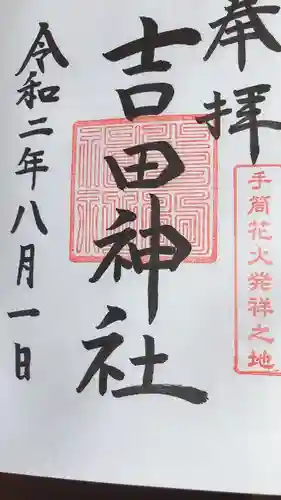 奉拝
手筒花火発祥之地
吉田神社
令和二年八月一日